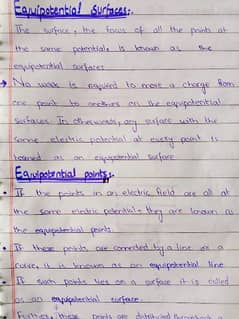 Equipotential Surfaces:-
The surface, the focus of all the points at
the same potential, is known as the
equipotential surfaces
→ No work is required to move a charge from
one point to another on the equipotential
surfaces. In other words, any surface with the
same electric potential at every point is
termed as an equipotential surface
Equipotential points:-
• If the points in an electric field are all at
the same electric potential, they are known as
the equipotential points.
• If these points are connected by a line or a
curve, it is known as an equipotential line
• If such points lies on a surface it is called
as an equipotential surface.
Further, these points are distributed throughout a